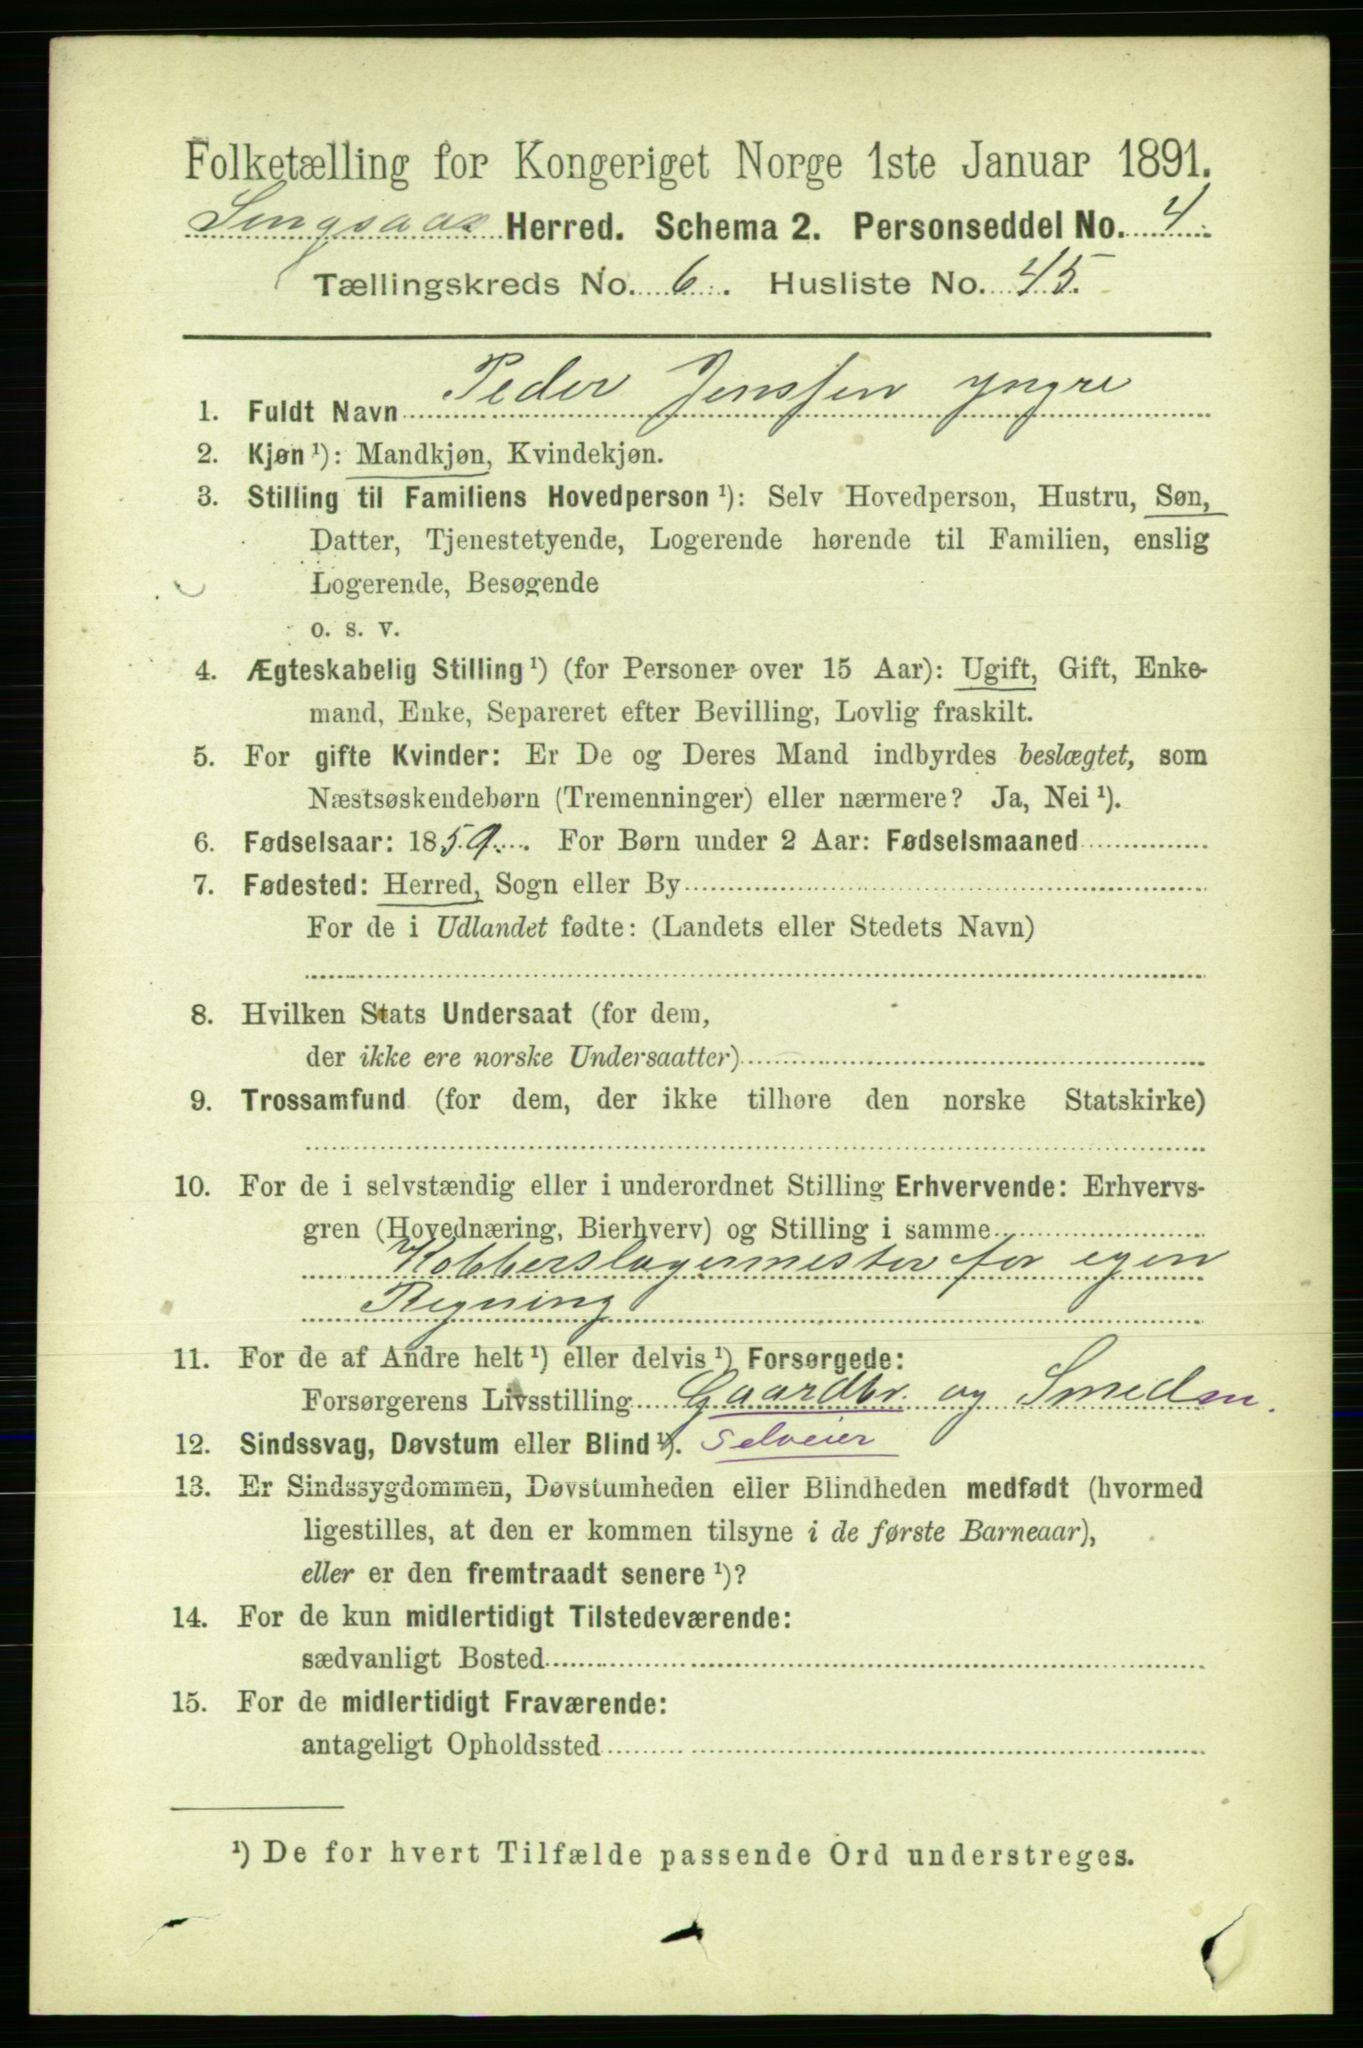 Folketælling for Kongeriget Norge 1ste Januar 1891.
Singsaas Herred. Schema 2. Personseddel No. 4
Tællingskreds No. 6. Husliste No. 45.
1. Fuldt Navn Peder Jenssen yngre
2. Kjøn ¹): Mandkjøn, Kvindekjøn.
3. Stilling til Familiens Hovedperson ¹): Selv Hovedperson, Hustru, Søn,
Datter, Tjenestetyende, Logerende hørende til Familien, enslig
Logerende, Besøgende
o. s. v.
4. Ægteskabelig Stilling ¹) (for Personer over 15 Aar): Ugift, Gift, Enke-
mand, Enke, Separeret efter Bevilling, Lovlig fraskilt.
5. For gifte Kvinder: Er De og Deres Mand indbyrdes beslægtet, som
Næstsøskendebørn (Tremenninger) eller nærmere? Ja, Nei ¹).
6. Fødselsaar: 1859. For Børn under 2 Aar: Fødselsmaaned
7. Fødested: Herred, Sogn eller By
For de i Udlandet fødte: (Landets eller Stedets Navn)
8. Hvilken Stats Undersaat (for dem,
der ikke ere norske Undersaatter)
9. Trossamfund (for dem, der ikke tilhøre den norske Statskirke)
10. For de i selvstændig eller i underordnet Stilling Erhvervende: Erhvervs-
gren (Hovednæring, Bierhverv) og Stilling i samme
Kobberslagermester for egen
Regning
11. For de af Andre helt ¹) eller delvis ¹) Forsørgede:
Forsørgerens Livsstilling Gaardbr. og Smeden.
12. Sindssvag, Døvstum eller Blind ¹). Selveier
13. Er Sindssygdommen, Døvstumheden eller Blindheden medfødt (hvormed
ligestilles, at den er kommen tilsyne i de første Barneaar),
eller er den fremtraadt senere ¹)?
14. For de kun midlertidigt Tilstedeværende:
sædvanligt Bosted
15. For de midlertidigt Fraværende:
antageligt Opholdssted
¹) De for hvert Tilfælde passende Ord understreges.